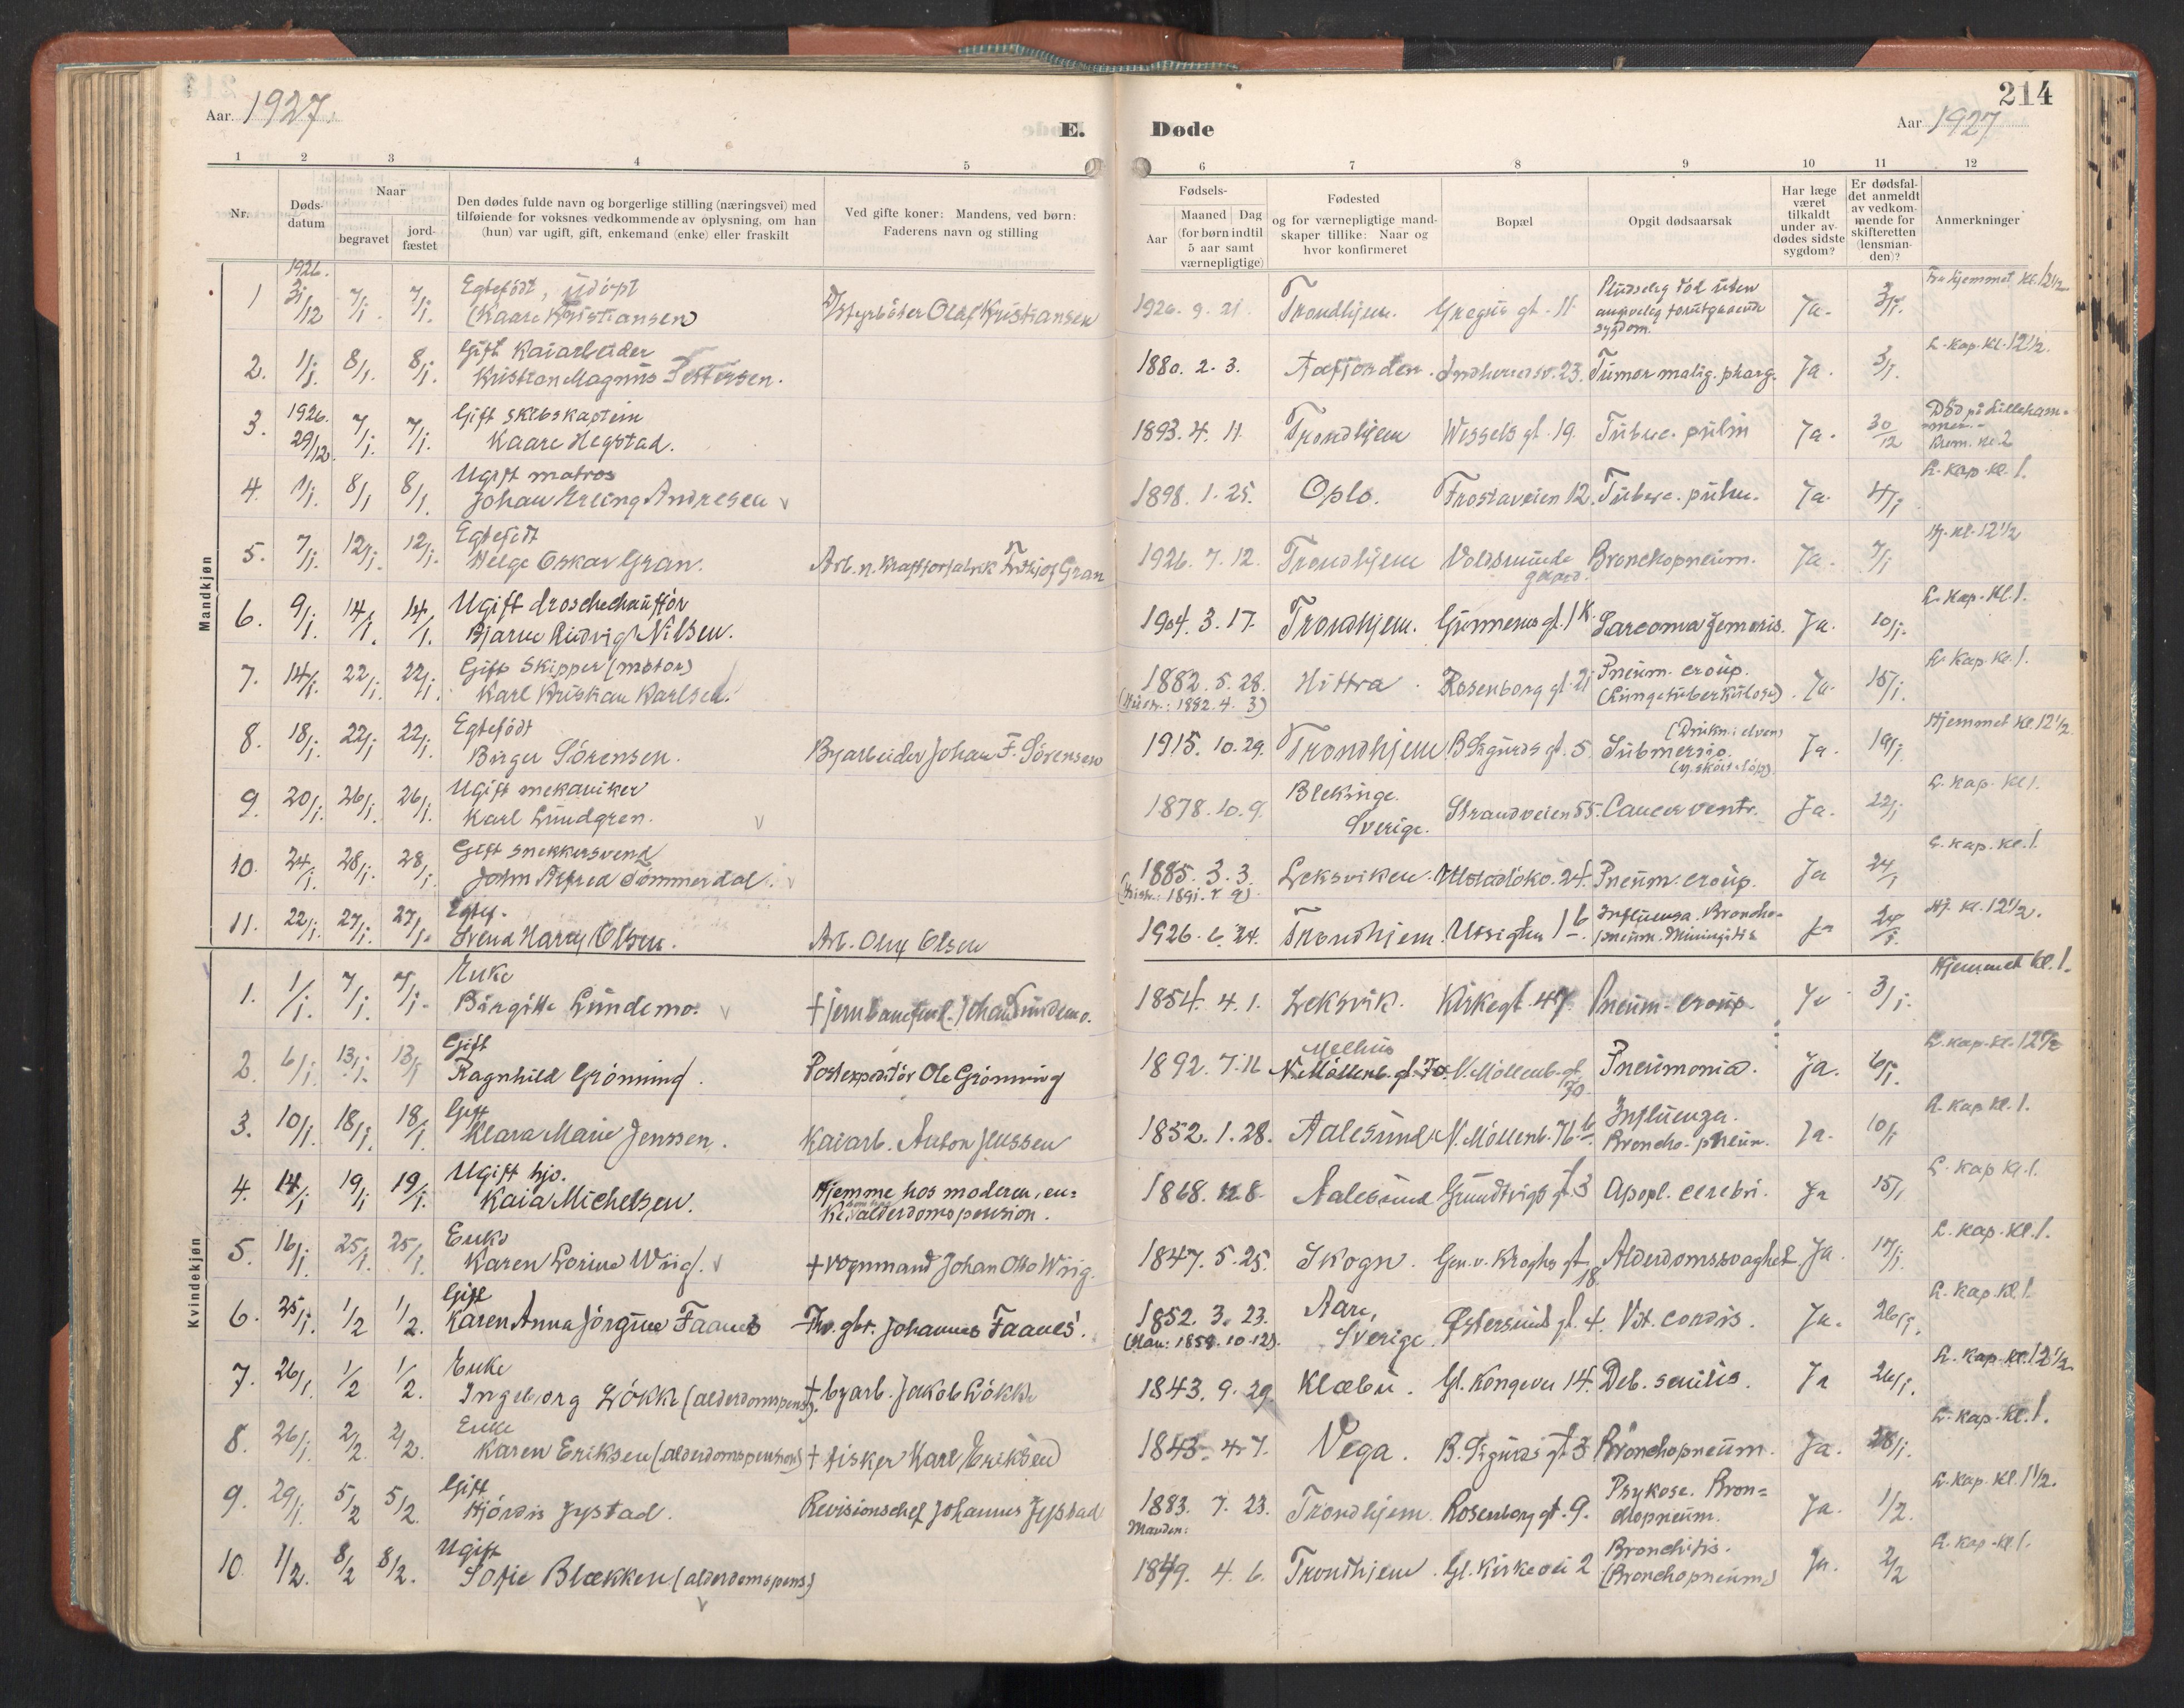 214
Aar 1927.
E. Døde
Aar 1927
1 2 3 4 5 6 7 8 9 10 11 12
Nr.
Døds-
datum
Naar
begravet
jord-
fæstet
Den dødes fulde navn og borgerlige stilling (næringsvei) med
tilføiende for voksnes vedkommende av oplysning, om han
(hun) var ugift, gift, enkemand (enke) eller fraskilt
Ved gifte koner: Mandens, ved børn:
Faderens navn og stilling
Fødsels-
Aar
Maaned Dag
(for børn indtil
5 aar samt
værnepligtige)
Fødested
og for værnepligtige mand-
skaper tillike: Naar og
hvor konfirmeret
Bopæl
Opgit dødsaarsak
Har læge
været
tilkaldt
under av-
dødes sidste
sygdom?
Er dødsfal-
det anmeldt
av vedkom-
mende for
skifteretten
(lensman-
den)?
Anmerkninger
Mandkjøn
1926. Egtefödt, udöpt Pludselig död uten Fra hjemmet kl. 12 1/2
1 31/12 7/1. 7/1. (Kaare Kristiansen) Istyrbåser Olaf Kristiansen 1926. 9. 21. Trondhjem. Gregus gt. 11 Ja. 3/1.
sygdom.
Gift Kaiarbeider L. kap. kl. 12 1/2.
2. 1/1. 8/1. 8/1. Kristian Magnus Pettersen. 1880. 2. 3. Aafjorden. Indherredsv. 23. Tumor malig. pharg. Ja. 3/1.
1926. Gift skibskaptein Död på Lilleham-
3. 29/12. 7/1. 7/1. Kaare Hegstad. 1893. 4. 11. Trondhjem Wessels gt. 19. Tuberc. pulm Ja. 30/12 mer.
Krem. kl. 2
Ugift matros L. kap. kl. 1.
4. 1/1. 8/1 8/1. Johan Erling Andresen v 1898. 1. 25. Oslo. Frostaveien 12. Tuberc. pulm. Ja. 4/1
Egtefödt Hj. kl. 12 1/2
5. 7/1. 12/1. 12/1. Helge Oskar Gran. Arb. n. Kraftforfabrik Fridtjof Gran 1926. 7. 12. Trondhjem Voldsminde Bronchopneum. Ja. 7/1
gaard.
Ugift droschechaufför L. Kap. Kl. 1.
6. 9/1. 14/1. 14/1. Bjarne Ludvig Nilsen. 1904. 3. 17. Trondhjem. Gunnerus gt. 1 K. Sarcoma femoris. Ja. 10/1.
Gift Skipper (motor) Pneum. croup. L. Kap. kl. 1.
7. 14/1. 22/1. 22/1. Karl Kristian Karlsen. 1882. 5. 28. Hittra. Rosenborg gt. 21 (Lungetuberkulose). Ja. 15/1.
(Hustr.: 1882. 4. 3)
Egtefödt (Drukn. i elven) Hjemmet kl. 12 1/2
8. 18/1. 22/1 22/1. Birger Sörensen. Byarbeider Johan F. Sörensen 1915. 10. 29. Trondhjem B. Sigurds gt. 5. Submersio. Ja. 19/1.
Ugift mekaniker Blekinge. L. kap. kl 1.
9. 20/1. 26/1. 26/1. Karl Lundgren. v 1878. 10. 9. Sverige. Strandveien 55. Cancer ventr. Ja. 22/1
Gift snekkersvend L. kap. kl. 1.
10. 24/1. 28/1. 28/1. John Alfred Tömmerdal v 1885. 3. 3. Leksviken. Ulstadlökv. 24. Pneum. croup. Ja 24/1
(Hustr.: 1891. 7. 9)
Egtef. Influensa. Broncho- Hj. kl. 12 1/2.
11. 22/1. 27/1. 27/1. Svend Harry Olsen. Arb. Olaf Olsen 1926. 6. 24. Trondhjem. Ulsighn 1 b pneum. Miningitis Ja 24/1.
Kvindekjøn
Enke Hjemmet kl. 1.
1. 1/1. 7/1. 7/1. Birgitte Lundemo. v + jernbanefunk. Johan Lundemo. 1854. 4. 1. Leksvik. Kirkegt. 47. Pneum. croup. Ja 3/1.
Gift Melhus L. kap. kl. 12 1/2
2. 6/1. 13/1. 13/1 Ragnhild Grönning. Postexpeditör Ole Grönning 1892. 7. 16 N. Möllenb. gt. 70. N. Möllenb. gt. 70. Pneumonia. Ja. 6/1.
Gift Influenza. L. kap. kl. 1.
3. 10/1. 18/1. 18/1. Klara Marie Jenssen. Kaiarb. Anton Jenssen 1852. 1. 28. Aalesund. N. Möllenb. 76 b Broncho-pneum. Ja. 10/1
Ugift hjo. Hjemme hos moderen, en- L. kap kl. 1.
4. 14/1 19/1 19/1. Kaia Michelsen. ke, alderdomspension. 1868. 12. 8. Aalesund Grundtvigs gt. 3 Apopl. cerebri. Ja 15/1
Enke L. kap. kl. 1.
5. 16/1. 25/1. 25/1. Karen Lorine Wiig. v + vognmand Johan Otto Wiig. 1847. 5. 25. Skogn. Gen. v. Kroghs gt. 18. Alderdomssvaghet. Ja. 17/1.
Gift Aare, L. kap. kl. 1.
6. 25/1. 1/2 1/2. Karen Anna Jörgine Faanes Fhv. gbr. Johannes Faanes. 1852. 3. 23. Sverige. Østersunds gt. 4. Vit. cordis. Ja. 26/1.
(Man: 1858. 10. 12).
Enke L. kap. kl. 12 1/2.
7. 26/1. 1/2 1/2. Ingeborg Lökke (alderdomspens). + byarb. Jakob Lökke 1843. 9. 29. Klæbu. Gl. Kongevei 14. Deb. senilis. Ja 26/1.
Enke L. kap. kl. 1.
8. 26/1. 2/2. 2/2. Karen Eriksen (alderdomspension) + fisker Karl Eriksen 1843. 4. 7. Vega. B. Sigurds gt. 3 Bronchopneum. Ja. 28/1.
Gift Psykose. Bron- L. kap. kl. 1 1/2.
9. 29/1. 5/2 5/2. Hjördis Jystad. Revisionschef Johannes Jystad 1883. 7. 23. Trondhjem. Rosenborg gt. 9. chopneum. Ja. 1/2.
Manden:
Ugift Bronchitis. L. kap. kl. 1.
10. 1/2. 8/2 8/2. Sofie Blækken (alderdomspens) 1849. 4. 6. Trondhjem. Gl. Kirkevei 2 (Bronchopneum.) Ja. 2/2
v